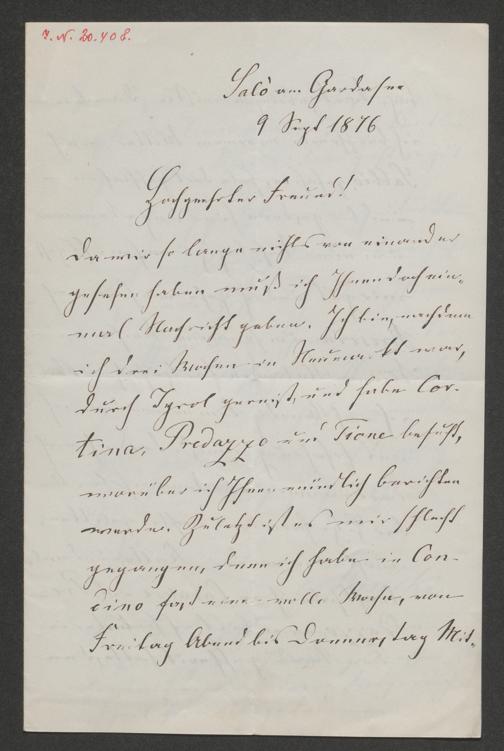 I. N. 20.408.
Salò am Gardasee
9 Sept 1876
Hochgeehrter Freund!
Da wir so lange nichts von einander
gesehen haben muß ich Ihnen doch ein-
mal Nachricht geben. Ich bin, nachdem
ich drei Wochen in Neumarkt war,
durch Tyrol gereist, und habe Cor-
tina, Predazzo und Tione besucht,
worüber ich Ihnen mündlich berichten
werde. Zuletzt ist es mir schlecht
gegangen, denn ich habe in Con-
dino fast eine volle Woche, von
Freitag Abend bis Donnerstag Mit-